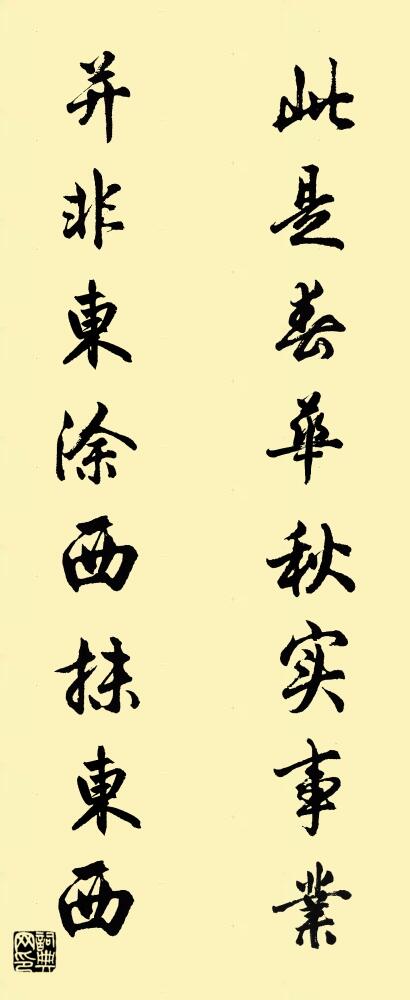 此是春华秋实事業
并非東涂西抹東西
詞典网印